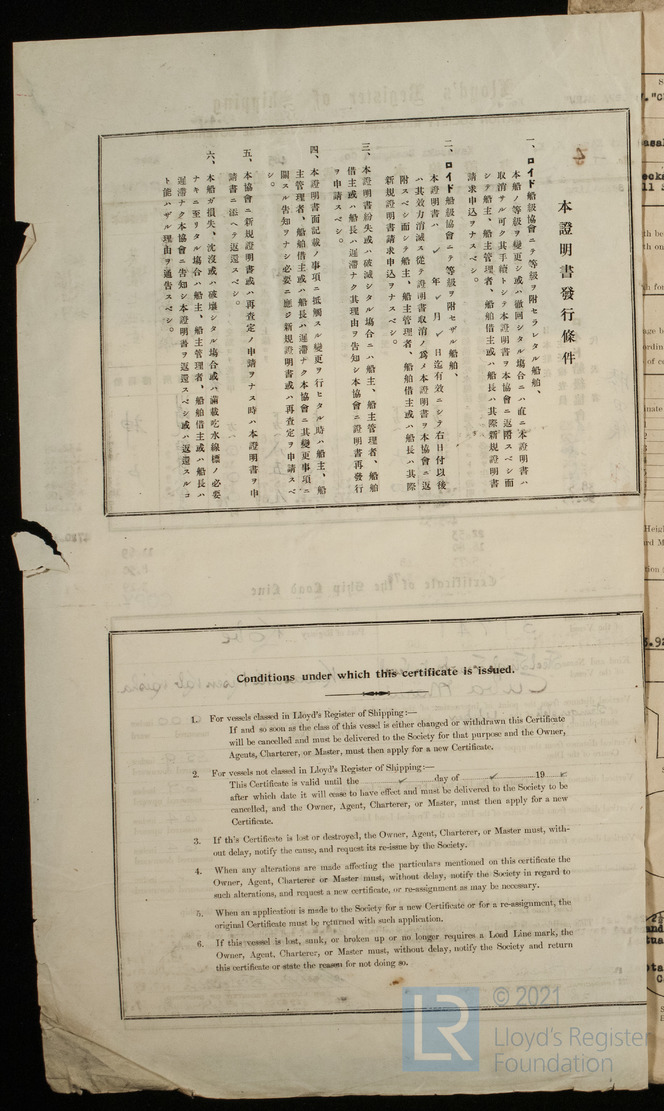 本證明書發行條件
一、ロイド船級協會ニテ等級ヲ附セラレタル船舶、
本船ノ等級ヲ變更シ或ハ撤回シタル場合ニハ直ニ本證明書ハ
取消サル可ク其手續トシテ本證明書ヲ本協會ニ返附スベシ而
シテ船主、船主管理者、船舶借主或ハ船長ハ其際新規證明書
請求申込ヲナスベシ。
二、ロイド船級協會ニテ等級ヲ附セザル船舶、
本證明書ハ ✓ 年 ✓ 月 ✓ 日迄有效ニシテ右日付以後
ハ其效力消滅ス從テ證明書取消ノ爲メ本證明書ヲ本協會ニ返
附スベシ而シテ船主、船主管理者、船舶借主或ハ船長ハ其際
新規證明書請求申込ヲナスベシ。
三、本證明書紛失或ハ破滅シタル場合ニハ船主、船主管理者、船舶
借主或ハ船長ハ遲滯ナク其理由ヲ告知シ本協會ニ證明書再發行
ヲ申請スベシ。
四、本證明書面記載ノ事項ニ抵觸スル變更ヲ行ヒタル時ハ船主、船
主管理者、船舶借主或ハ船長ハ遲滯ナク本協會ニ其變更事項ニ
關スル告知ヲナシ必要ニ應ジ新規證明書或ハ再査定ヲ申請スベ
シ。
五、本協會ニ新規證明書或ハ再査定ノ申請ヲナス時ハ本證明書ヲ申
請書ニ添ヘテ返還スベシ。
六、本船ガ損失、沈沒或ハ破壞シタル場合或ハ滿載吃水線標ノ必要
ナキニ至リタル場合ハ船主、船主管理者、船舶借主或ハ船長ハ
遲滯ナク本協會ニ告知シ本證明書ヲ返還スベシ或ハ返還スルコ
ト能ハザル理由ヲ通告スベシ。
Conditions under which this certificate is issued.
1. For vessels classed in Lloyd's Register of Shipping:—
If and so soon as the class of this vessel is either changed or withdrawn this Certificate
will be cancelled and must be delivered to the Society for that purpose and the Owner,
Agents, Charterer, or Master, must then apply for a new Certificate.
2. For vessels not classed in Lloyd's Register of Shipping:—
This Certificate is valid until the ✓ day of ✓ 19 ✓
after which date it will cease to have effect and must be delivered to the Society to be
cancelled, and the Owner, Agent, Charterer, or Master, must then apply for a new
Certificate.
3. If th's Certificate is lost or destroyed, the Owner, Agent, Charterer, or Master must, with-
out delay, notify the cause, and request its re-issue by the Society.
4. When any alterations are made affecting the particulars mentioned on this certificate the
Owner, Agent, Charterer or Master must, without delay, notify the Society in regard to
such alterations, and request a new certificate, or re-assignment as may be necessary.
5. When an application is made to the Society for a new Certificate or for a re-assignment, the
original Certificate must be returned with such application.
6. If this vessel is lost, sunk, or broken up or no longer requires a Load Line mark, the
Owner, Agent, Charterer, or Master must, without delay, notify the Society and return
this certificate or state the reason for not doing so.
LR
© 2021
Lloyd's Register
Foundation